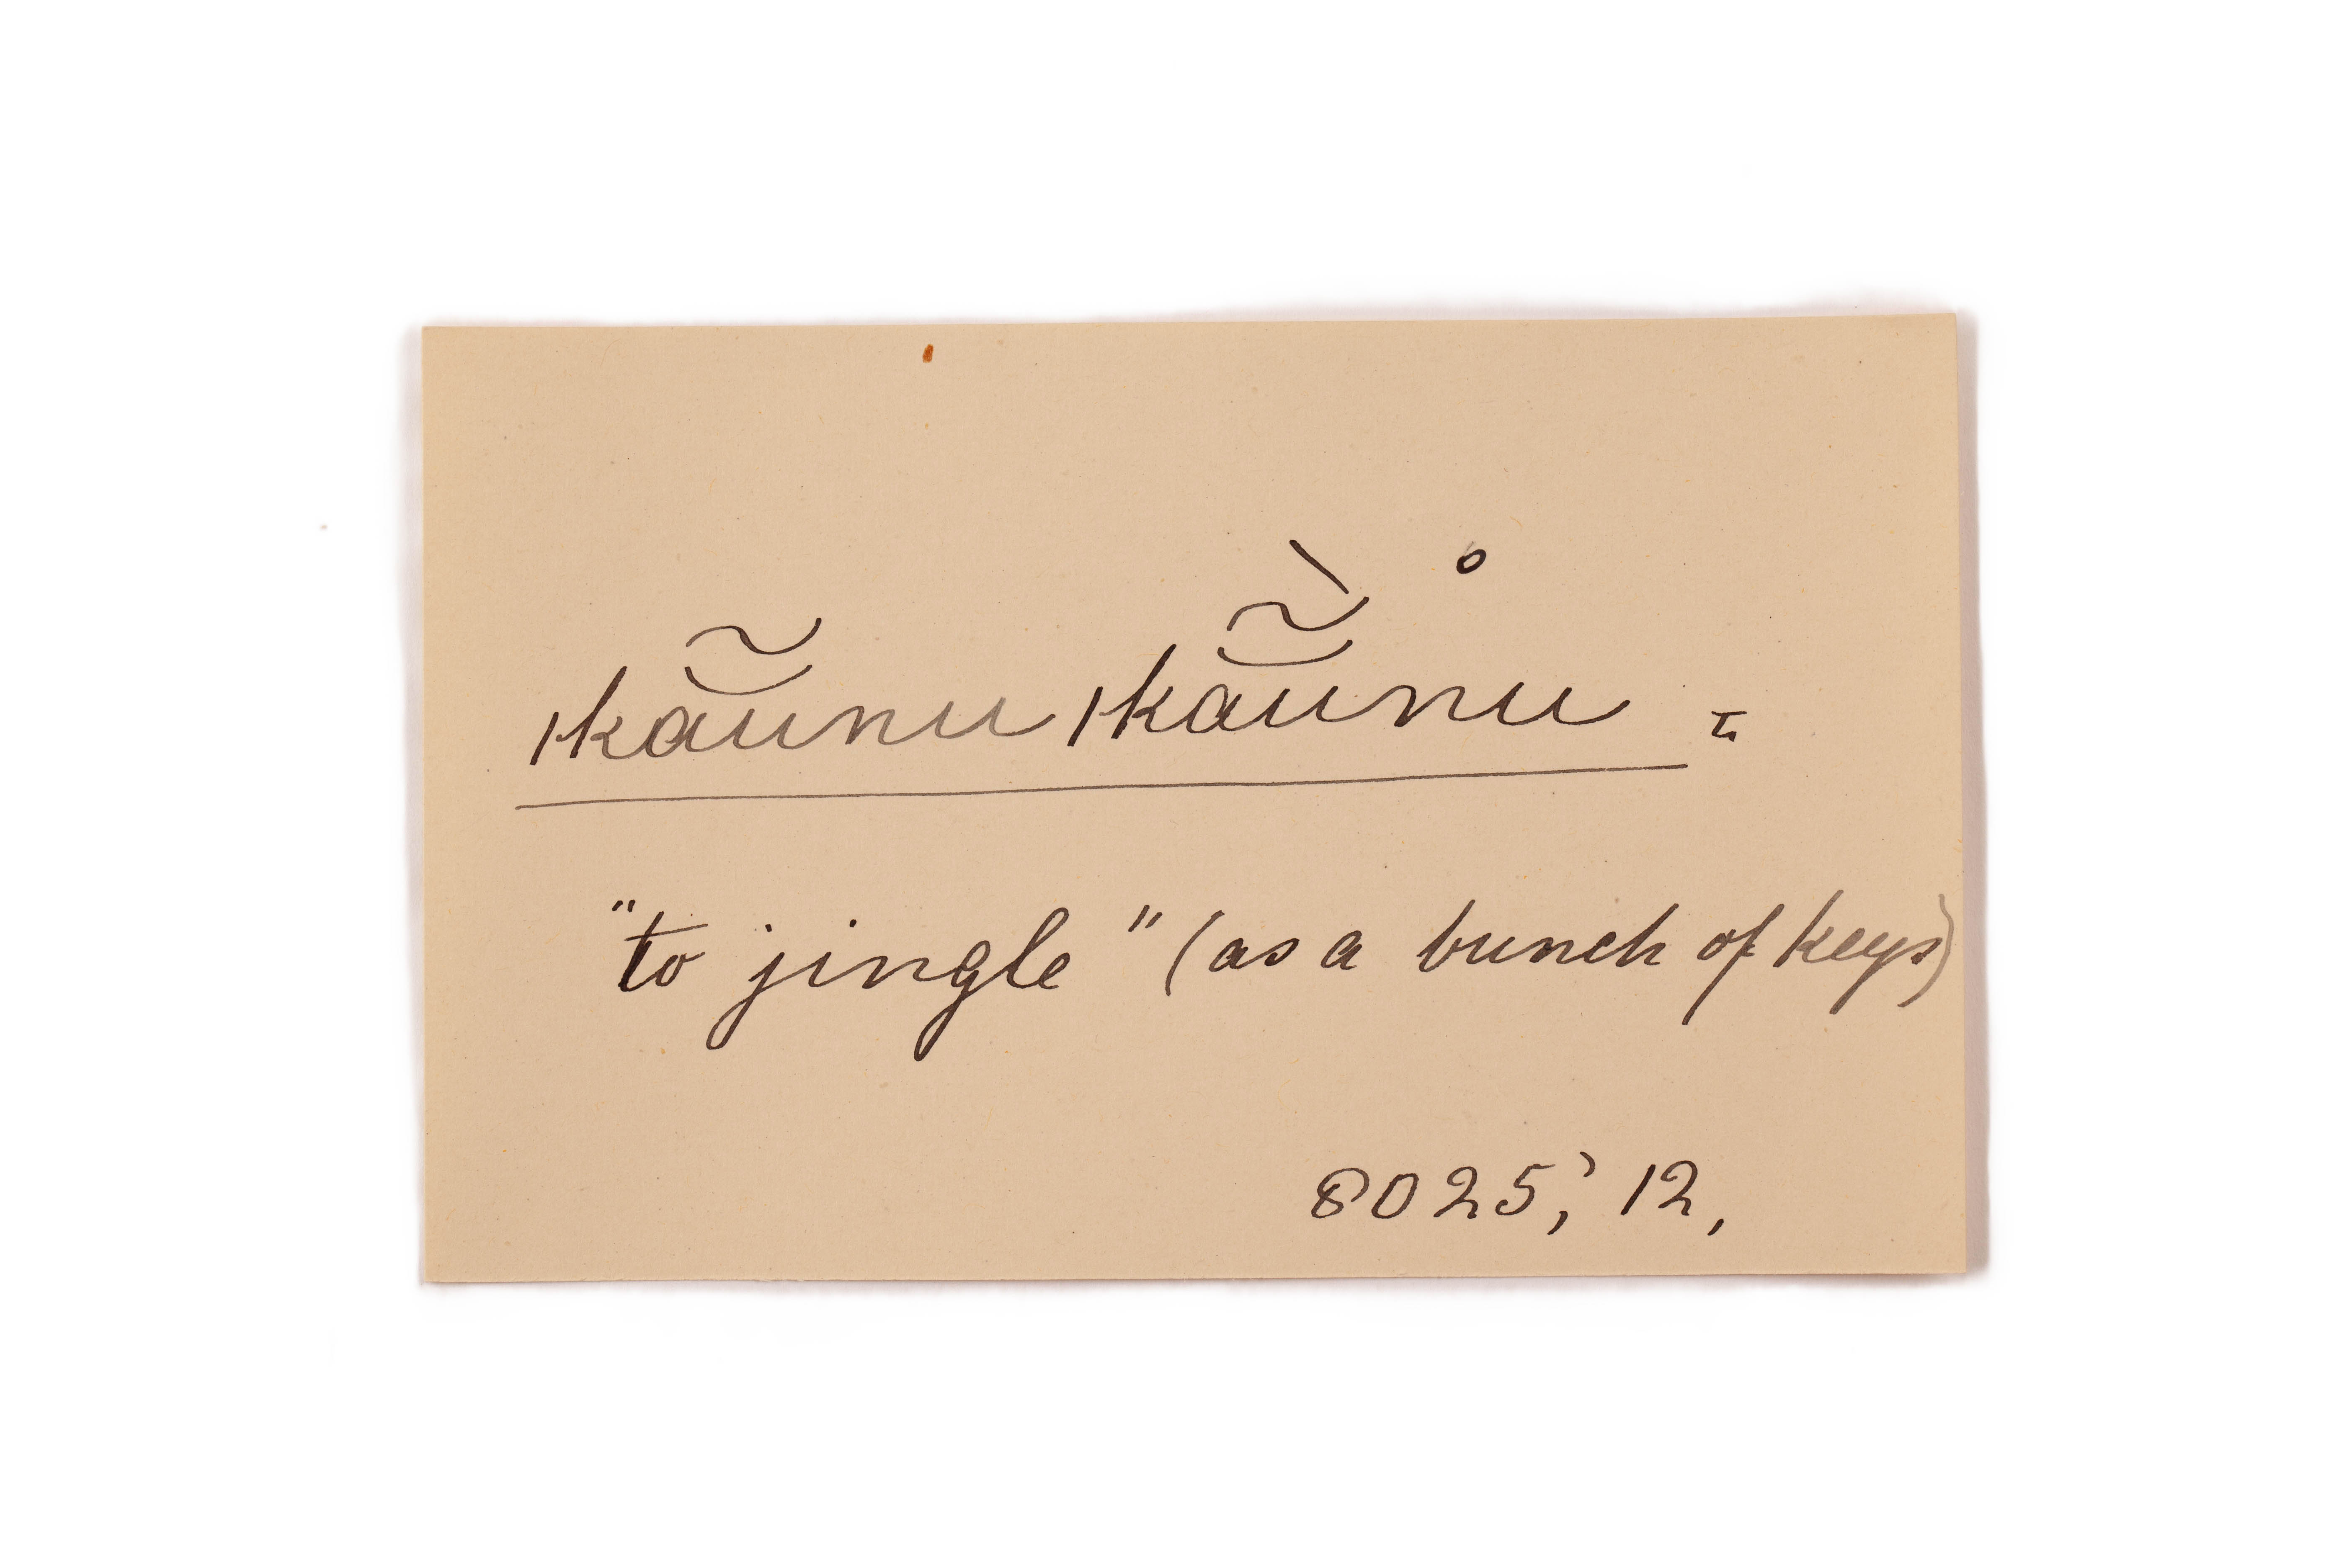 ǀkã̆unuǀkã̆̀unů =
"to jingle" (as a bunch of keys)
8025,' 12,